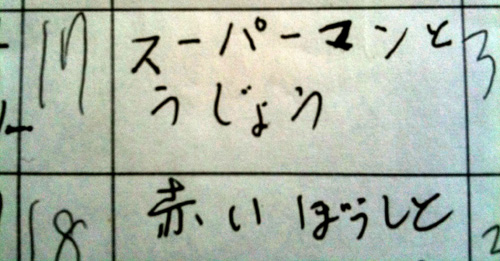 17 スーパーマンと 3
うじょう
18 赤いぼうしと